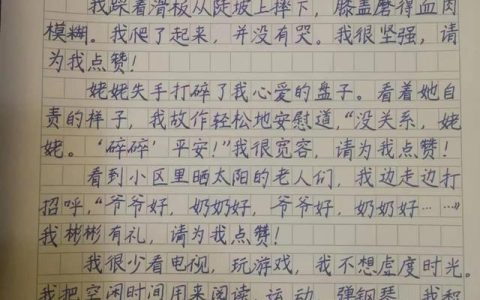 我踩着滑板从陡坡上摔下，膝盖磨得血肉
模糊。我爬了起来，并没有哭。我很坚强，请
为我点赞！
姥姥失手打碎了我心爱的盘子。看着她自
责的样子，我故作轻松地安慰道，“没关系，姥
姥。‘碎碎’平安！”我很宽容，请为我点赞！
看到小区里晒太阳的老人们，我边走边打
招呼，“爷爷好，奶奶好，爷爷好，奶奶好……”
我彬彬有礼，请为我点赞！
我很少看电视，玩游戏，我不想虚度时光。
我把空闲时间用来阅读、运动、弹钢琴。我积